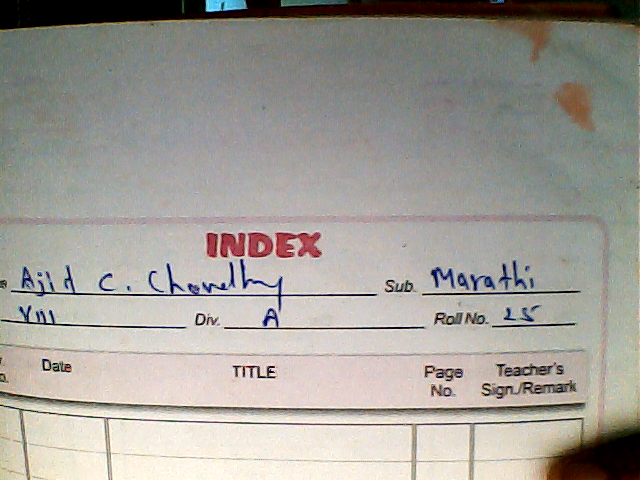 INDEX
Ajit C. Chowdhry Sub. Marathi
VIII Div. A Roll No. 25
Date TITLE Page No. Teacher's Sign./Remark